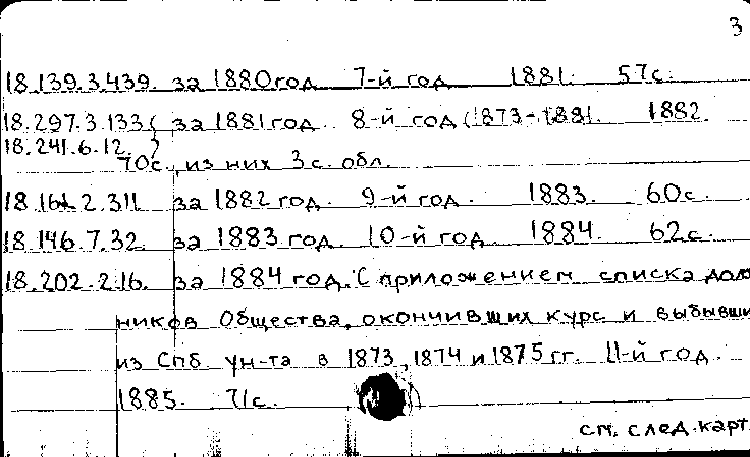 3
18.139.3.439. за 1880 год. 7-й год. 1881. 57с.
18.297.3.133 } за 1881 год. 8-й год (1873-1881. 1882.
18.241.6.12. }
70с., из них 3 с. обл.
18.161.2.311 за 1882 год. 9-й год. 1883. 60с.
18.146.7.32. за 1883 год. 10-й год. 1884. 62с.
18.202.2.16. за 1884 год. С приложением списка долж
ников Общества, окончивших курс и выбывши
из Спб. ун-та в 1873, 1874 и 1875 гг. 11-й год.
1885. 71с.
см. след. карт.